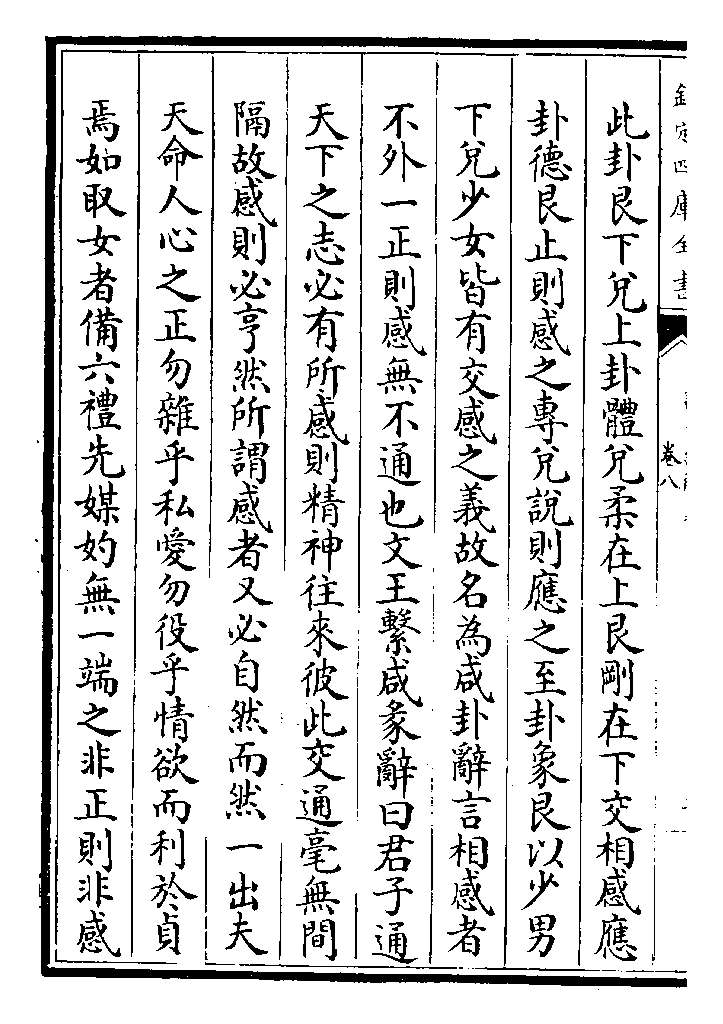 欽定四庫全書
卷八
此卦艮下兌上卦體兌柔在上艮剛在下交相感應
卦德艮止則感之專兌說則應之至卦象艮以少男
下兌少女皆有交感之義故名為咸卦辭言相感者
不外一正則感無不通也文王繫咸彖辭曰君子通
天下之志必有所感則精神往來彼此交通毫無間
隔故感則必亨然所謂感者又必自然而然一出夫
天命人心之正勿雜乎私愛勿役乎情欲而利於貞
焉如取女者備六禮先媒妁無一端之非正則非感